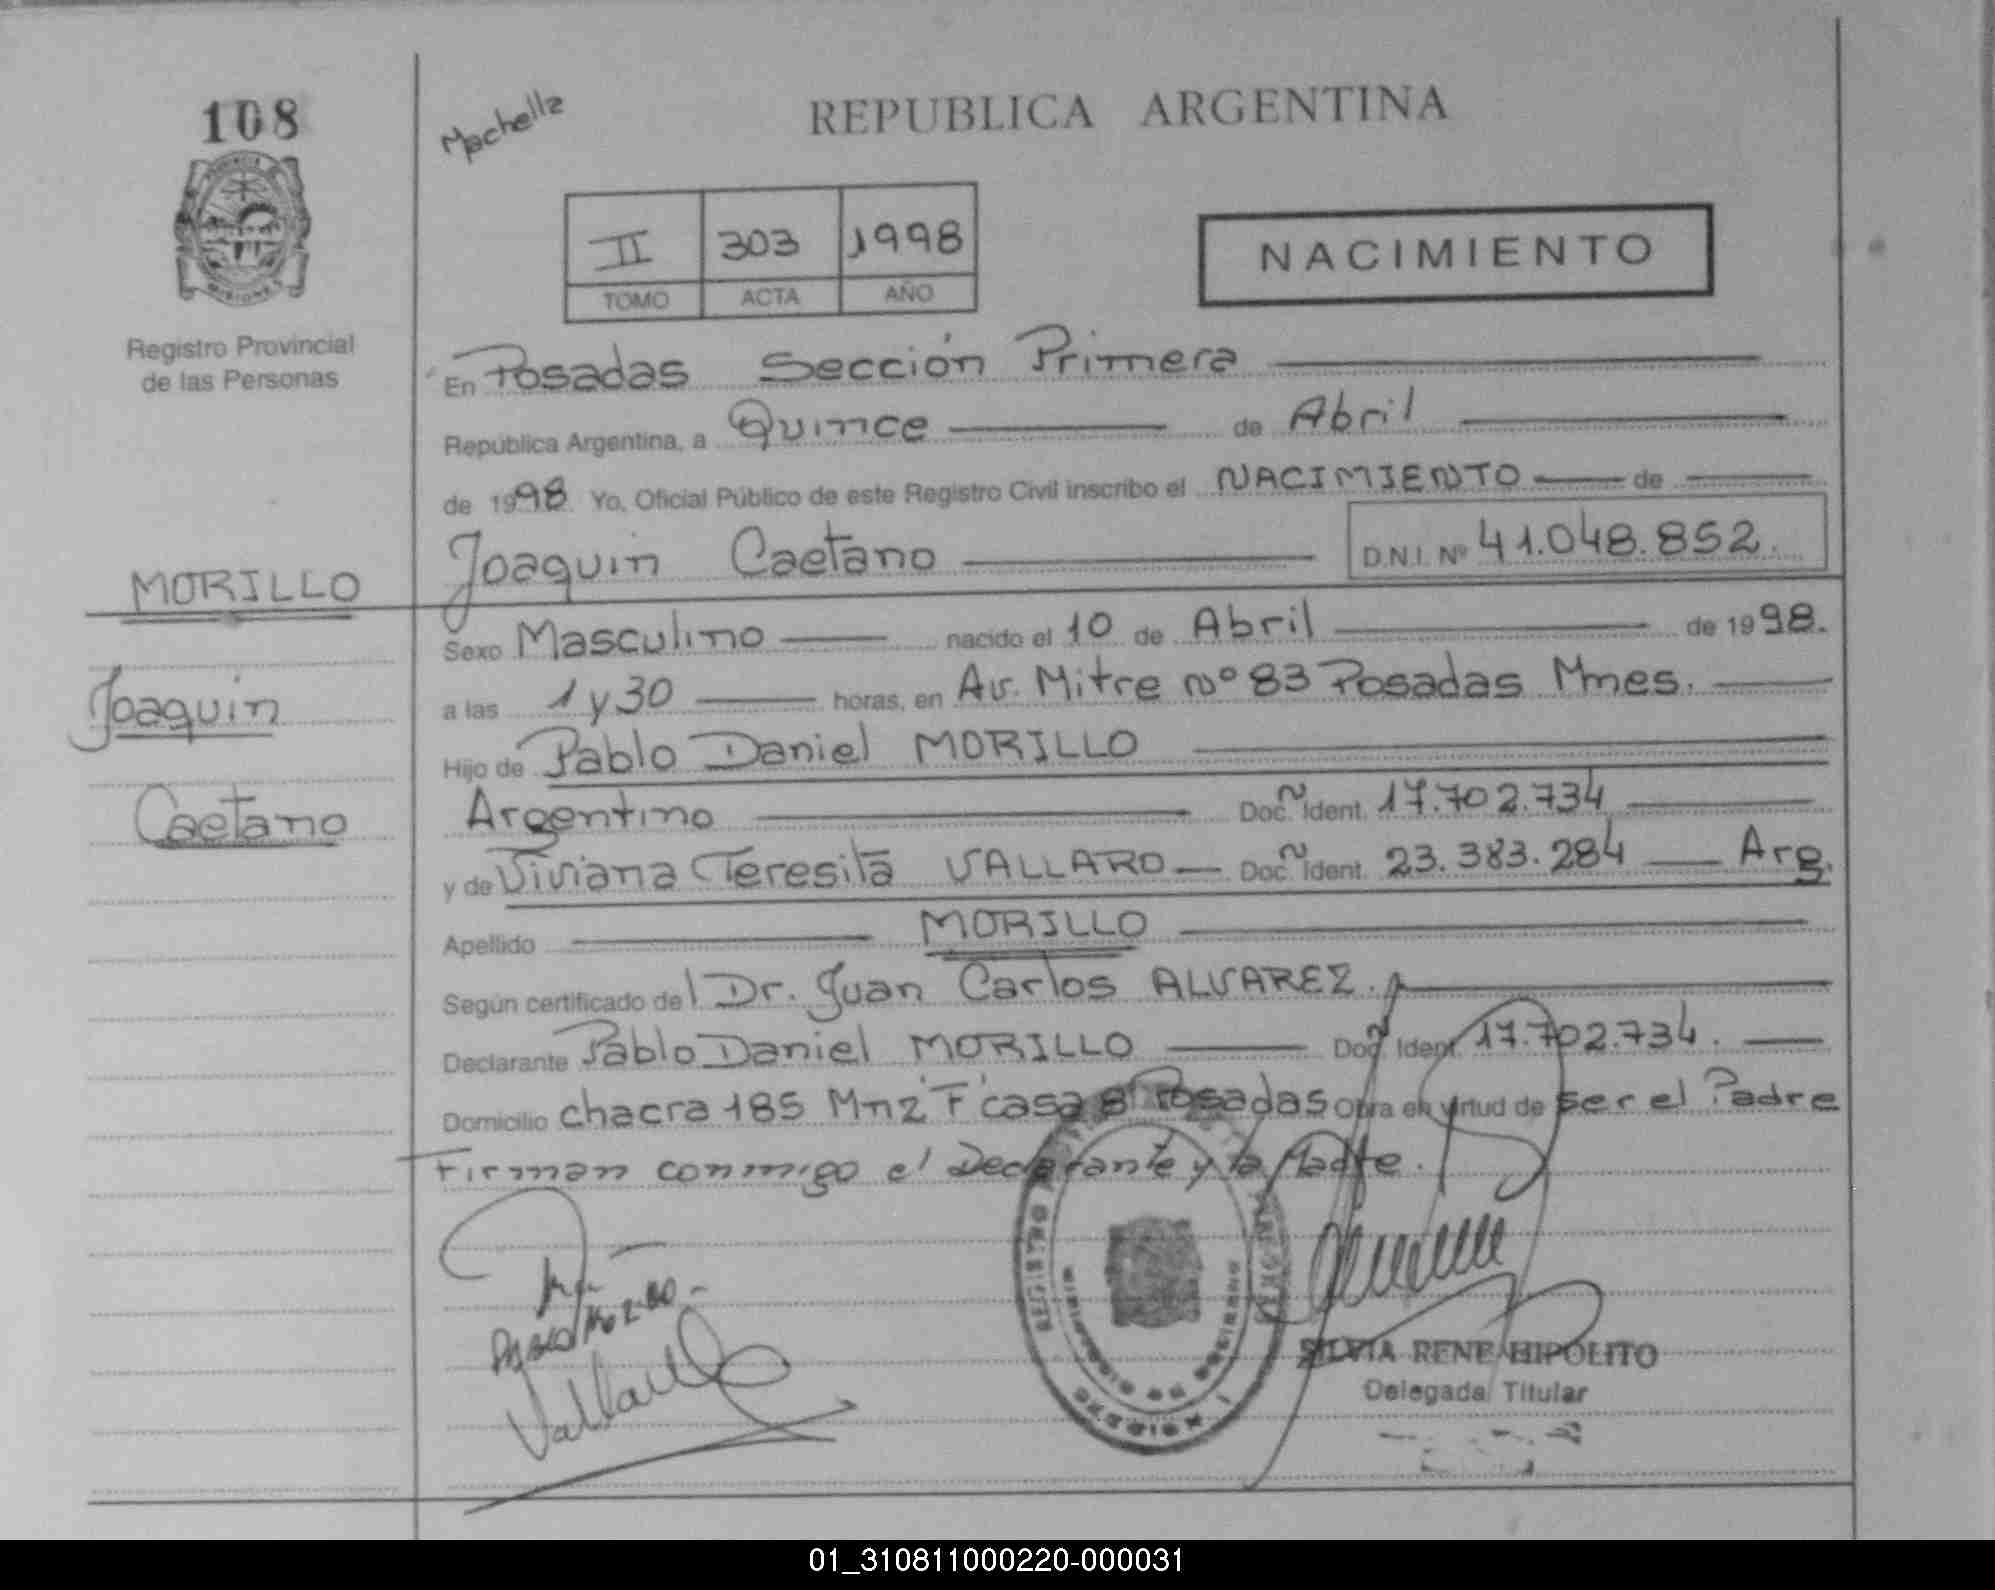 108
Machella
REPUBLICA ARGENTINA
II 303 1998
TOMO ACTA AÑO
NACIMIENTO
Registro Provincial
de las Personas
MORILLO
Joaquin
Caetano
En Posadas Sección Primera
República Argentina, a Quince de Abril
de 1998 Yo, Oficial Público de este Registro Civil inscribo el NACIMIENTO de
Joaquin Caetano D.N.I. Nº 41.048.852.
Sexo Masculino nacido el 10 de Abril de 1998.
a las 1 y 30 horas, en Av. Mitre nº 83 Posadas Mnes.
Hijo de Pablo Daniel MORILLO
Argentino Doc. Ident. 17.702.734
y de Viviana Teresita VALLARO Doc. Ident. 23.383.284 Arg.
Apellido MORILLO
Según certificado del Dr. Juan Carlos ALVAREZ.
Declarante Pablo Daniel MORILLO Doc. Ident. 17.702.734.
Domicilio chacra 185 Mnz "F" casa 8 Posadas Obra en virtud de ser el Padre
Firman conmigo el Declarante y la Madre.
REGISTRO
MISIONES
SILVIA RENE HIPOLITO
Delegada Titular
01_310811000220-000031